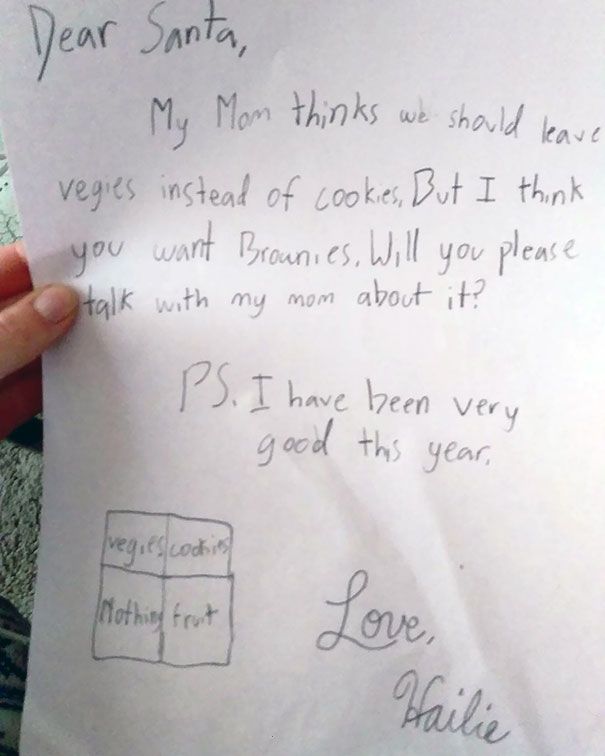 Dear Santa,
My Mom thinks we should leave
vegies instead of cookies, But I think
you want Brownies. Will you please
talk with my mom about it?
PS. I have been very
good this year.
vegies cookies
Nothing fruit
Love,
Hailie